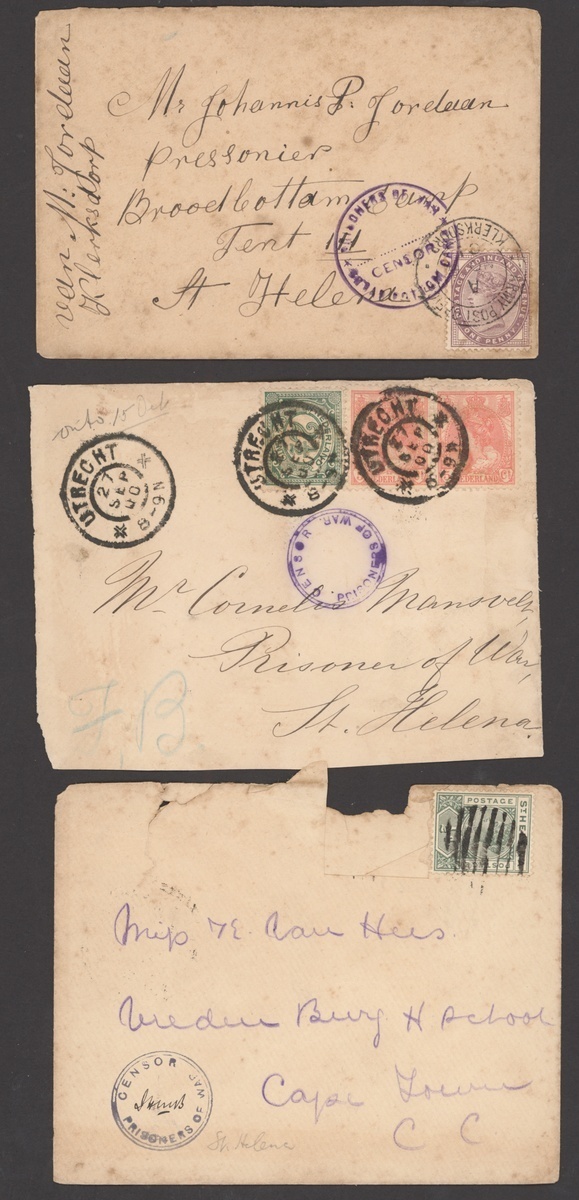 van M: Jordaan
Klerksdorp
Mr Johannis P. Jordaan
Pressonier
Broodbottam Camp
Tent 111
St Helena
PRISONERS OF WAR
CENSOR
KLERKSDORP
ARMY POST
POSTAGE AND INLAND REVENUE
ONE PENNY
UTRECHT
27
SEP
00
8-9N
UTRECHT
SEP
8
NEDERLAND
UTRECHT
SEP
00
8-9N
NEDERLAND
NEDERLAND
CENSOR
PRISONERS OF WAR
Mr. Cornelis Mansvelt,
Prisoner of War,
St. Helena
F.B.
POSTAGE
ST HE
POSTAGE
Miss E. Van Hees
Vreden Burg H School
Cape Town
C C
CENSOR
PRISONERS OF WAR
St. Helena